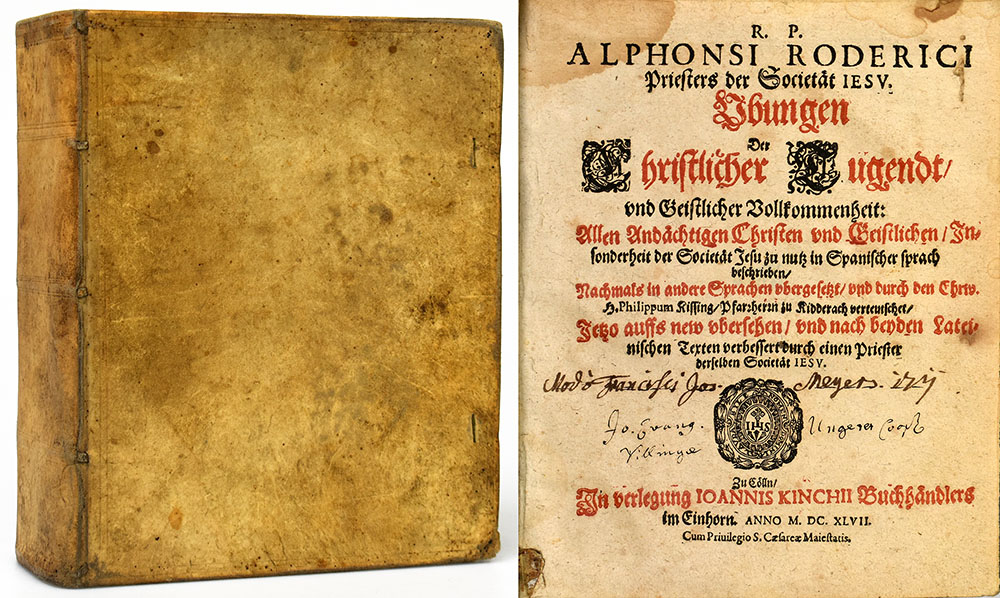 R. P.
ALPHONSI RODERICI
Priesters der Societät IESV.
Vbungen
Der
Christlicher Tugendt/
vnd Geistlicher Vollkommenheit:
Allen Andächtigen Christen vnd Geistlichen/ In-
sonderheit der Societät Jesu zu nutz in Spanischer sprach
beschrieben/
Nachmals in andere Sprachen vbergesetzt/ vnd durch den Ehrw.
H. Philippum Kissing/ Pfarzherrn zu Kidderach verteutschet/
Jetzo auffs new vbersehen/ vnd nach beyden Latei-
nischen Texten verbessert durch einen Priester
derselben Societät IESV.
Modò Francisci Jos. Meyers.
IHS
Jo. Evang. Ungerer
Villingæ
Zu Cölln/
In verlegung IOANNIS KINCHII Buchhändlers
im Einhorn. ANNO M. DC. XLVII.
Cum Priuilegio S. Cæsareæ Maiestatis.